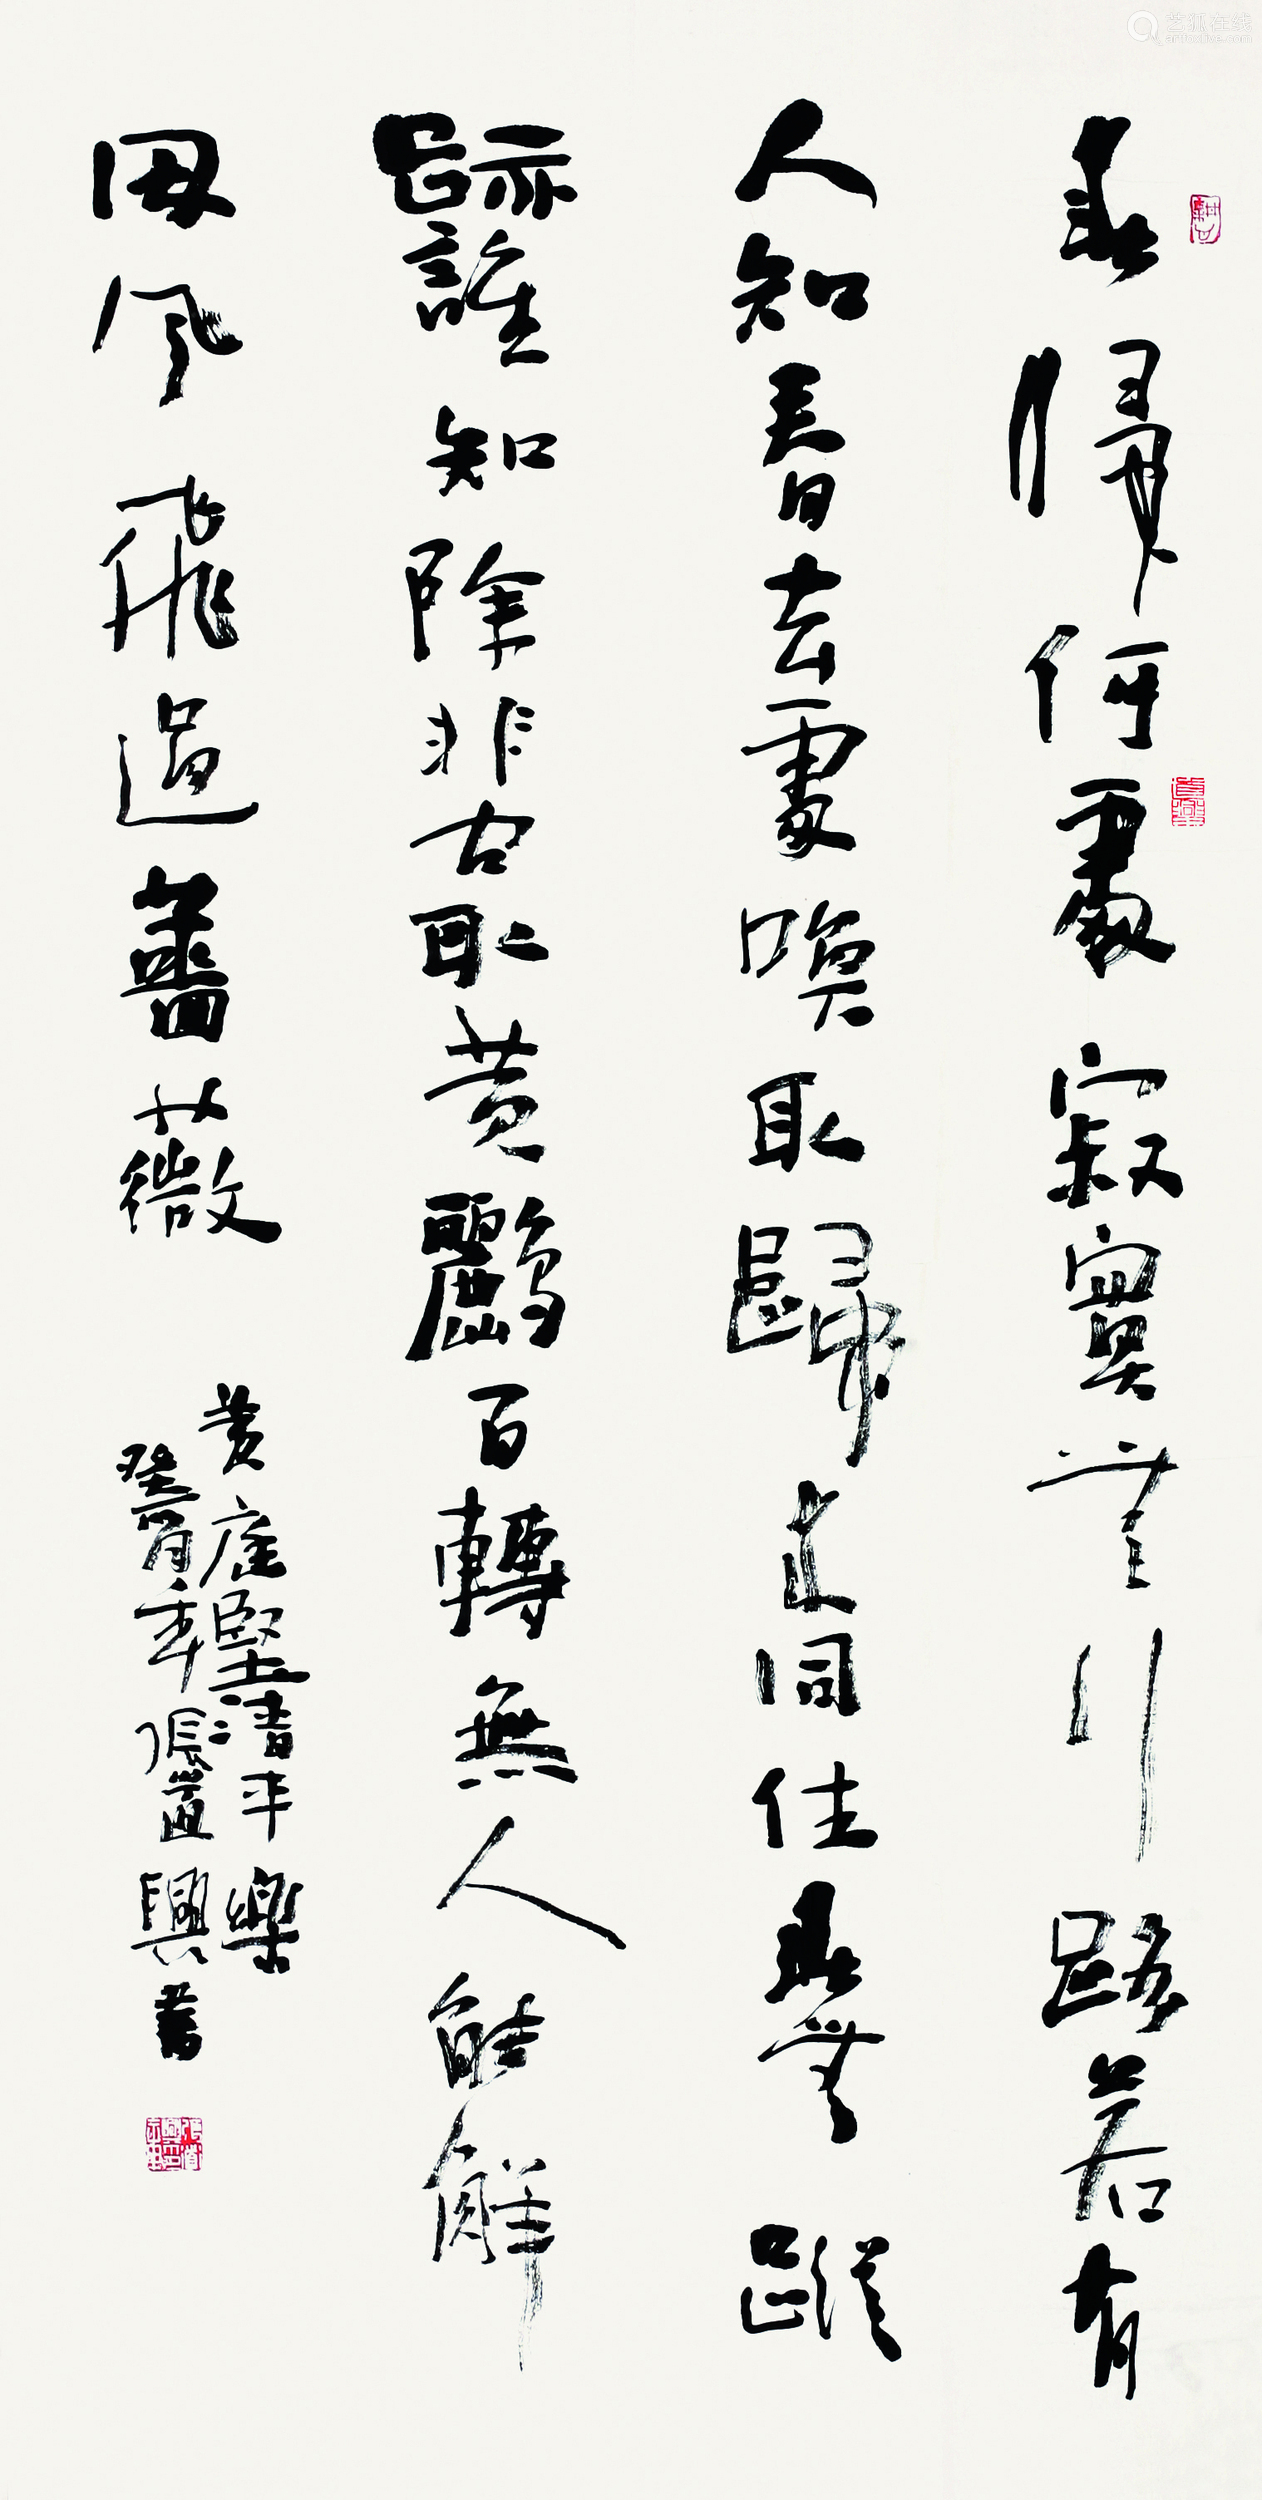 艺狐在线
artfoxlive.com
春歸何處寂寞無行路若有
人知春去處喚取歸來同住春無蹤
跡誰知除非問取黃鸝百轉無人能解
因風飛過薔薇
黃庭堅清平樂
癸年張道興書